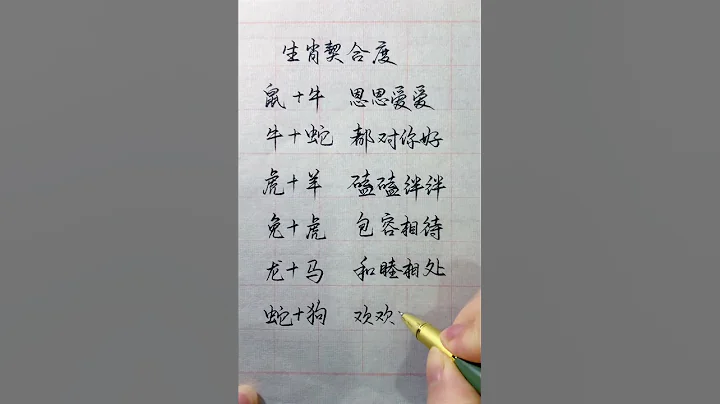 生肖契合度
鼠+牛 恩恩爱爱
牛+蛇 都对你好
虎+羊 磕磕绊绊
兔+虎 包容相待
龙+马 和睦相处
蛇+狗 欢欢